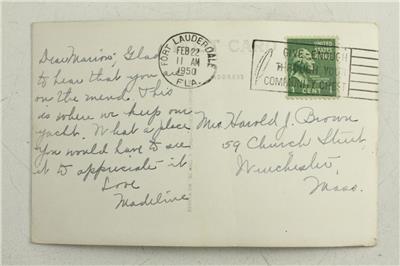 Dear Marion; Glad
to hear that you
on the mend. This
is where we keep our
yacht. What a place
you would have to see
it to appreciate it
Love
Madeline
FORT LAUDERDALE
FEB 22
11 AM
1950
FLA.
GIVE ENOUGH
THROUGH YOUR
COMMUNITY CHEST
CENT
ADDRESS
Mrs. Harold J. Brown
59 Church Street,
Winchester,
Mass.